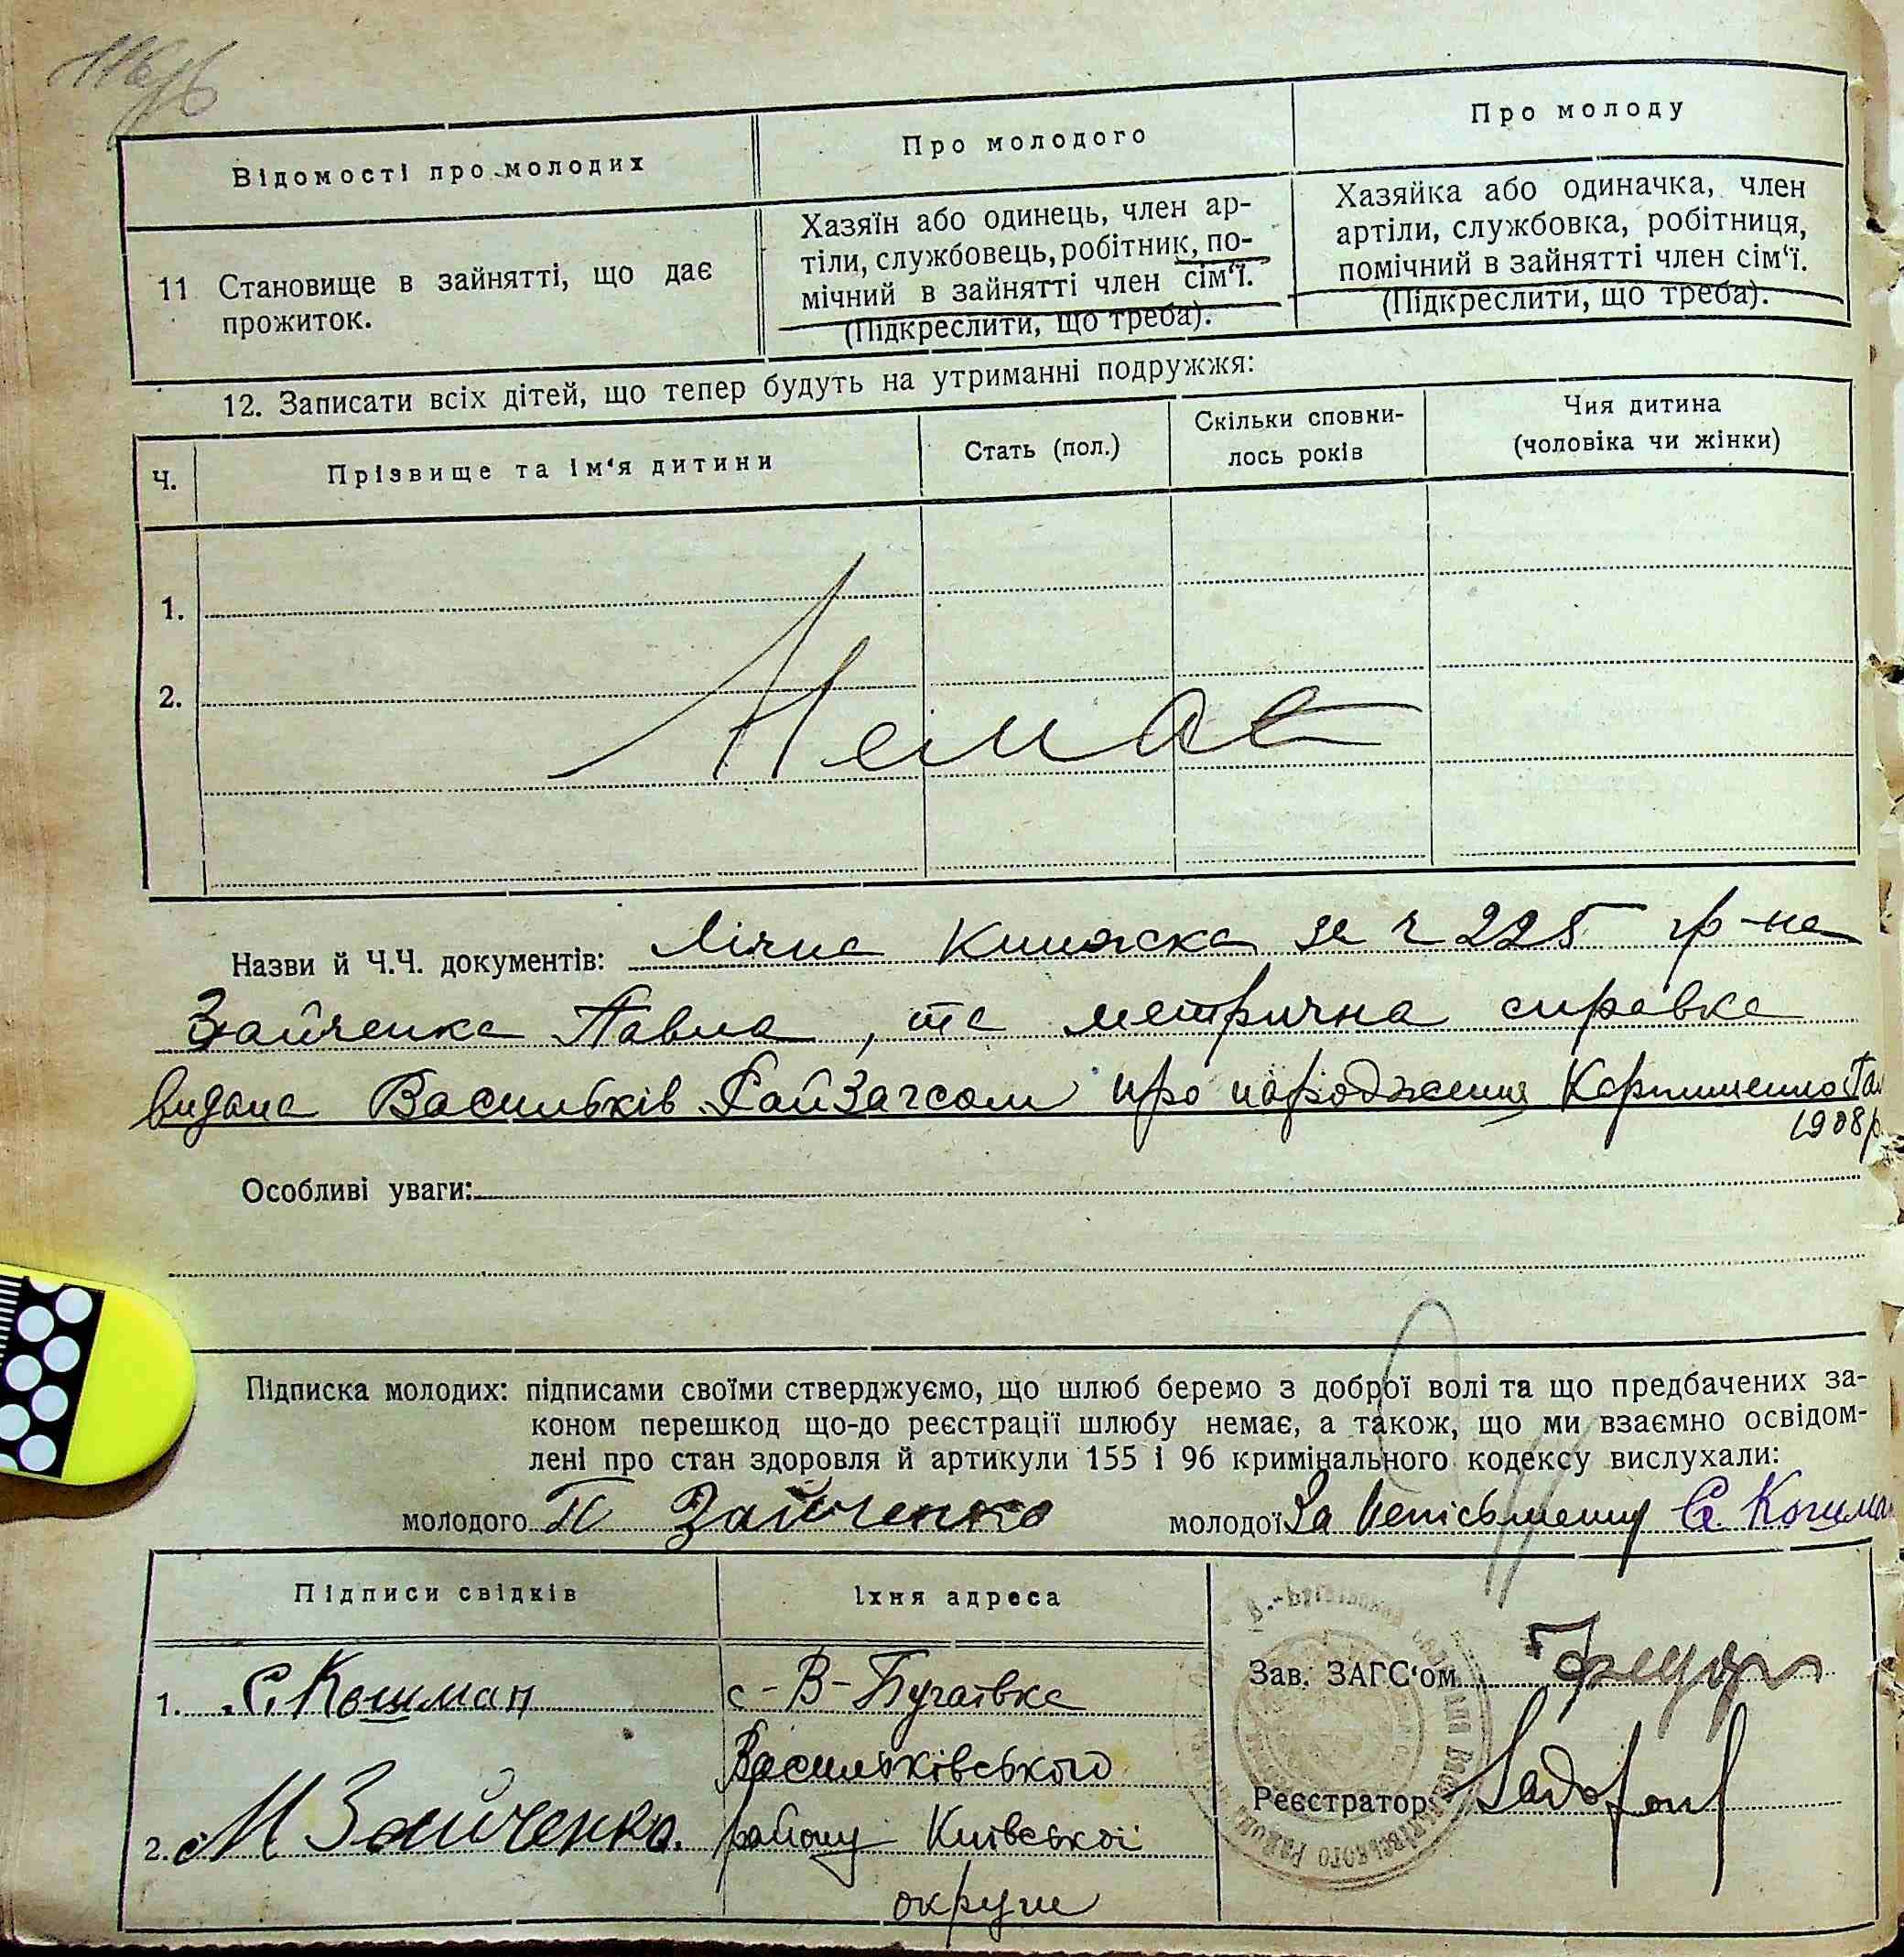 Відомості про молодих
Про молодого
Про молоду
11 Становище в зайнятті, що дає
прожиток.
Хазяїн або одинець, член ар-
тіли, службовець, робітник, по-
мічний в зайнятті член сім‘ї.
(Підкреслити, що треба).
Хазяйка або одиначка, член
артіли, службовка, робітниця,
помічний в зайнятті член сім‘ї.
(Підкреслити, що треба).
12. Записати всіх дітей, що тепер будуть на утриманні подружжя:
Ч.
Прізвище та ім‘я дитини
Стать (пол.)
Скільки сповни-
лось років
Чия дитина
(чоловіка чи жінки)
1.
2.
Немає
Назви й Ч.Ч. документів: Лічна Книжска за ч 225 гр-на
Зайченка Павла, та метрична справка
видана Васильків РайЗагсом про нородження
1908р.
Особливі уваги:
Підписка молодих: підписами своїми стверджуємо, що шлюб беремо з доброї волі та що предбачених за-
коном перешкод що-до реєстрації шлюбу немає, а також, що ми взаємно освідом-
лені про стан здоровля й артикули 155 і 96 кримінального кодексу вислухали:
молодого П Зайченко молодої За
Підписи свідків
Їхня адреса
1. С. Кошман
с-В-Бугаївка
Васильківського
2. М Зайченко.
району Київської
округи
Зав. ЗАГС‘ом
Реєстратор